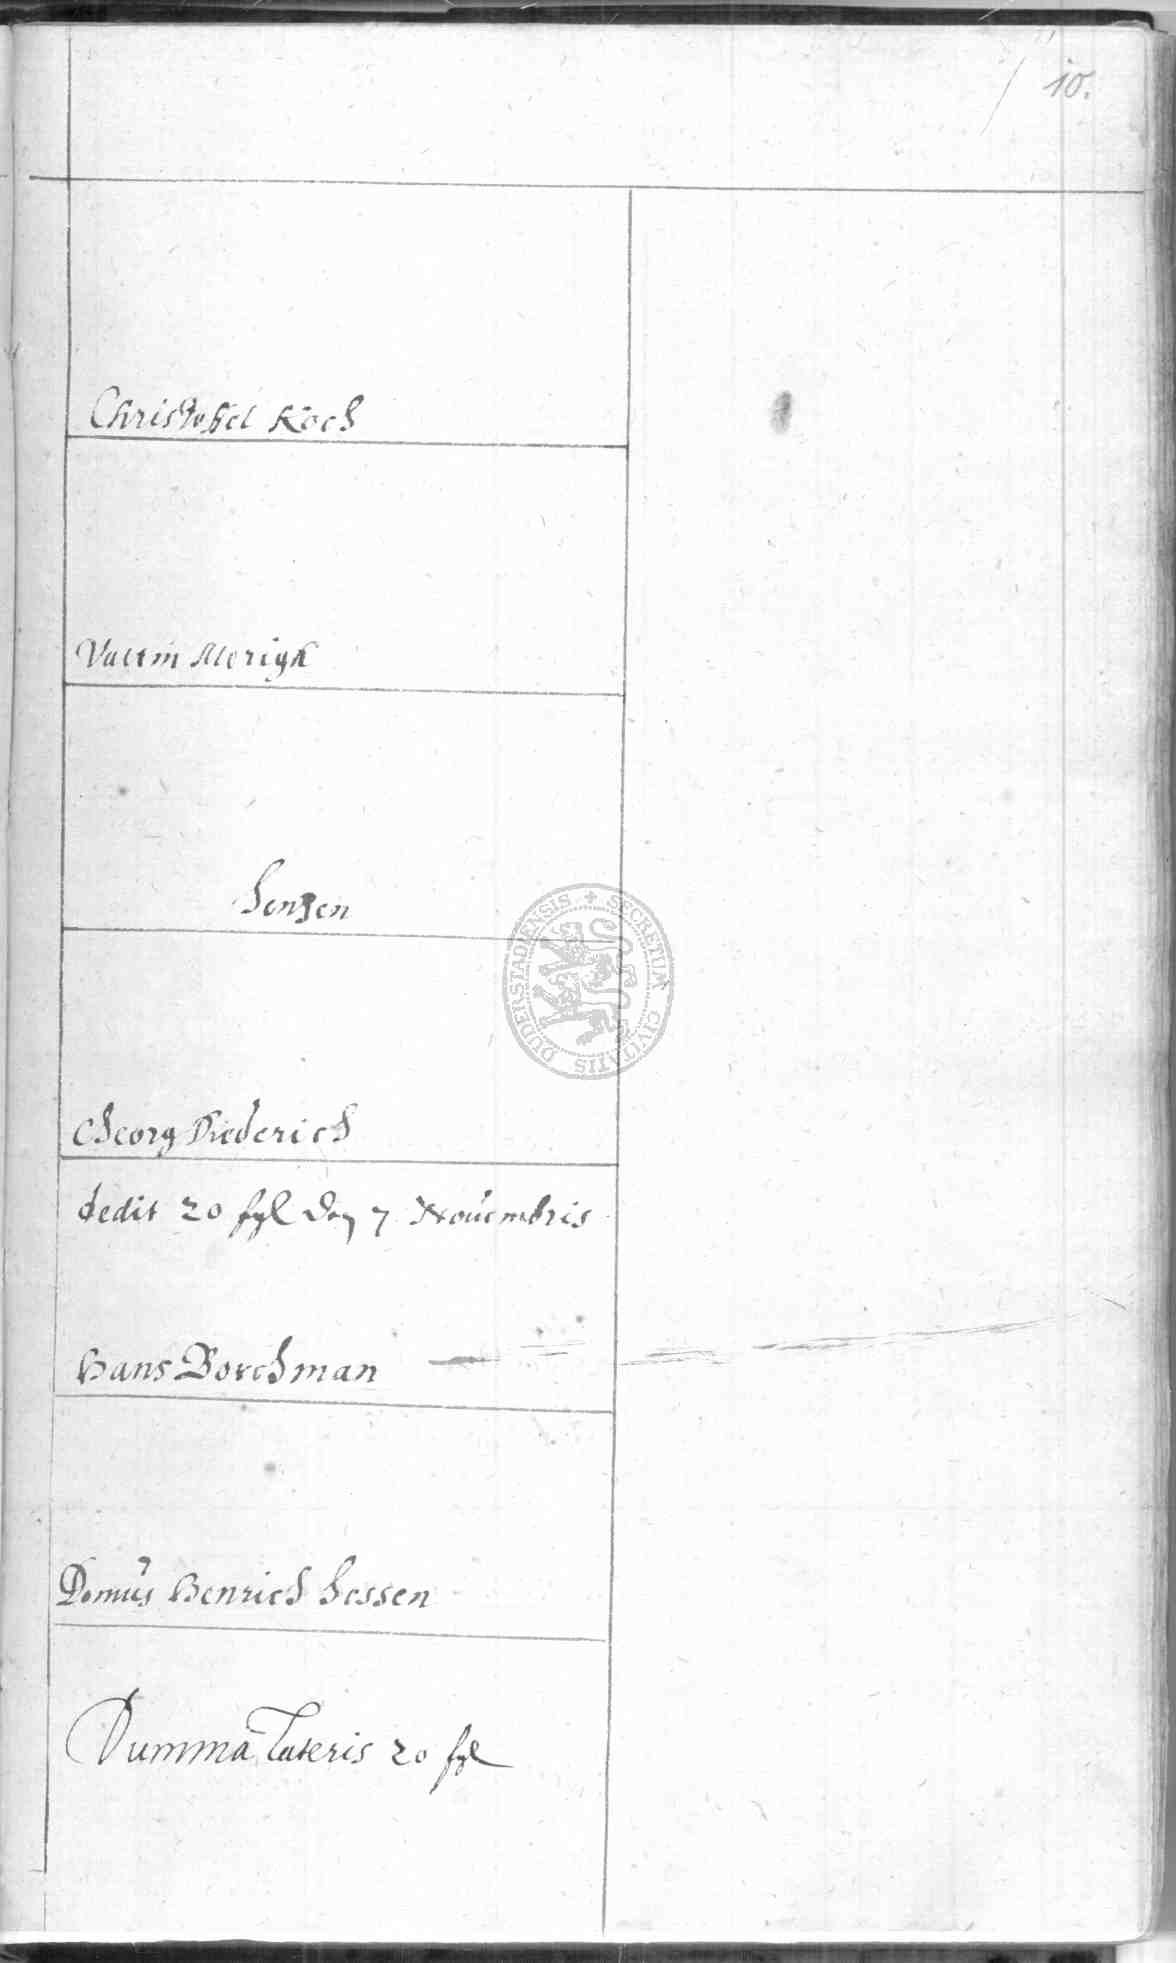 10.
Christoffel Koch
Valtin Merigk
Henzen
SECRETUM CIVITATIS DUDERSTADIENSIS
Cheorg Diederich
dedit 20 ßgl den 7 Nouembris
Hans Borchman
Domus Henrich Hessen
Summa Lateris 20 ßgl